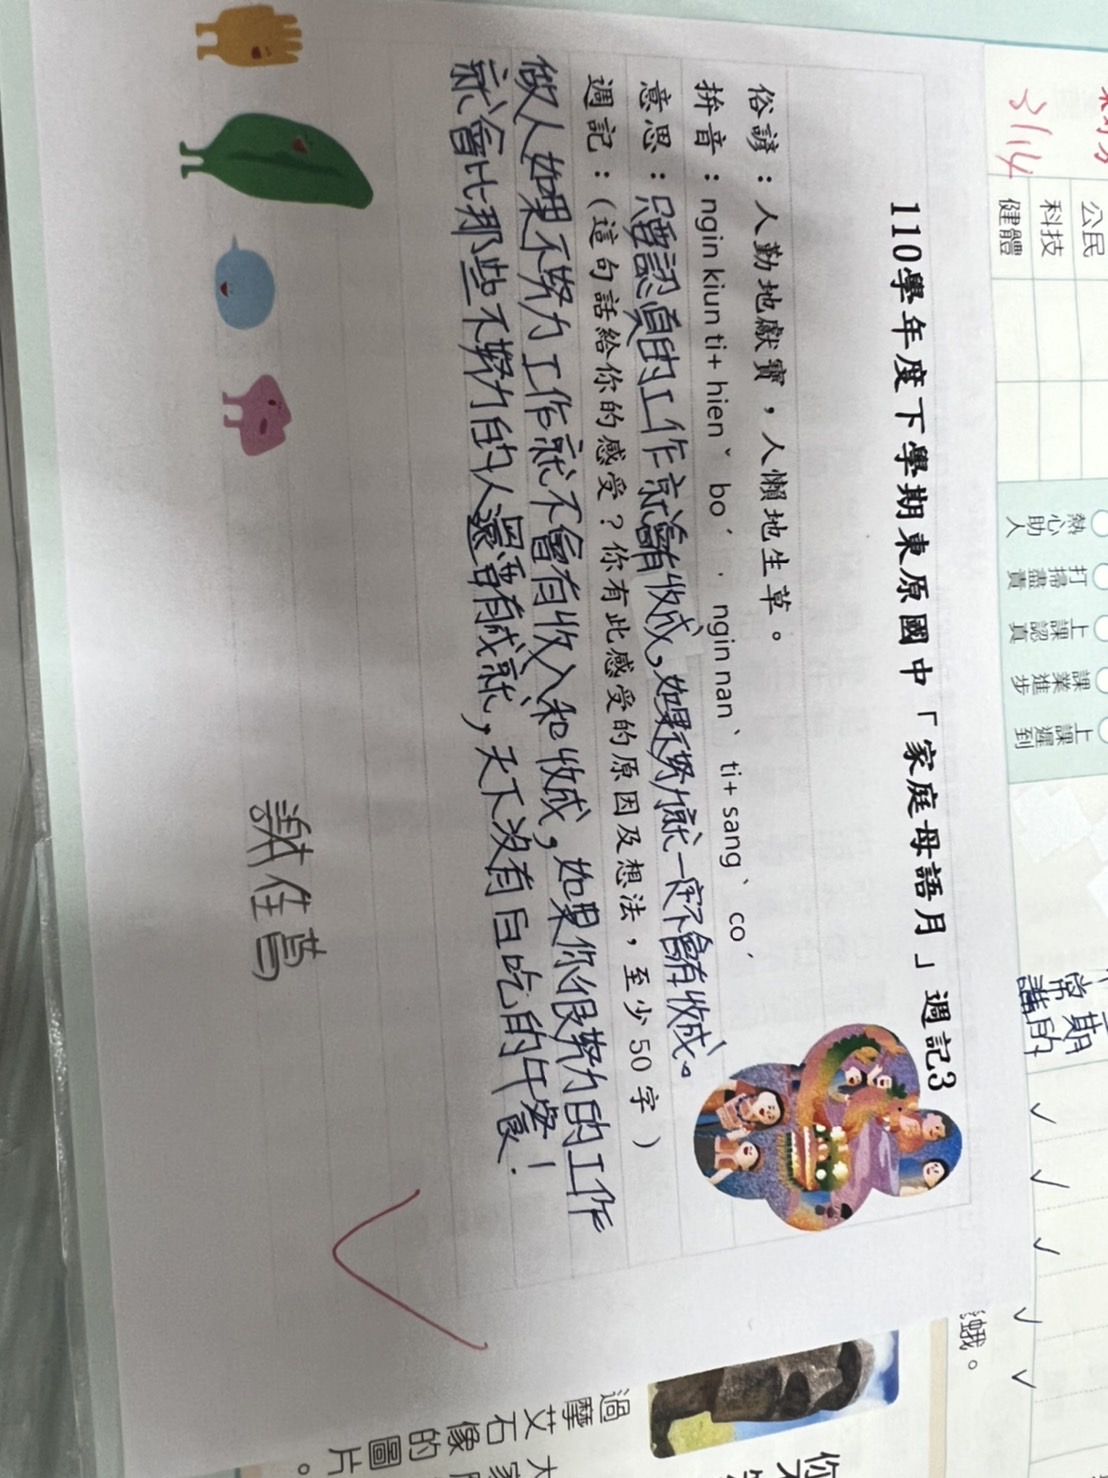 110學年度下學期東原國中「家庭母語月」週記3
俗諺：人勤地獻寶，人懶地生草。
拚音：ngin kiun ti+ hienˇ boˊ．ngin nanˋ ti+ sangˋ coˊ
意思：只要認真的工作就會有收成，如果不努力就一定不會有收成。
週記：（這句話給你的感受？你有此感受的原因及想法，至少50字）
做人如果不努力工作就不會有收入和收成，如果你很努力的工作
就會比那些不努力的人還要有成就，天下沒有白吃的午餐！
謝佳蓉
3/14
公民
科技
健體
熱心助人
打掃盡責
上課認真
課業進步
上課遲到
常期
講的
蛾。
過摩艾石像的圖片。